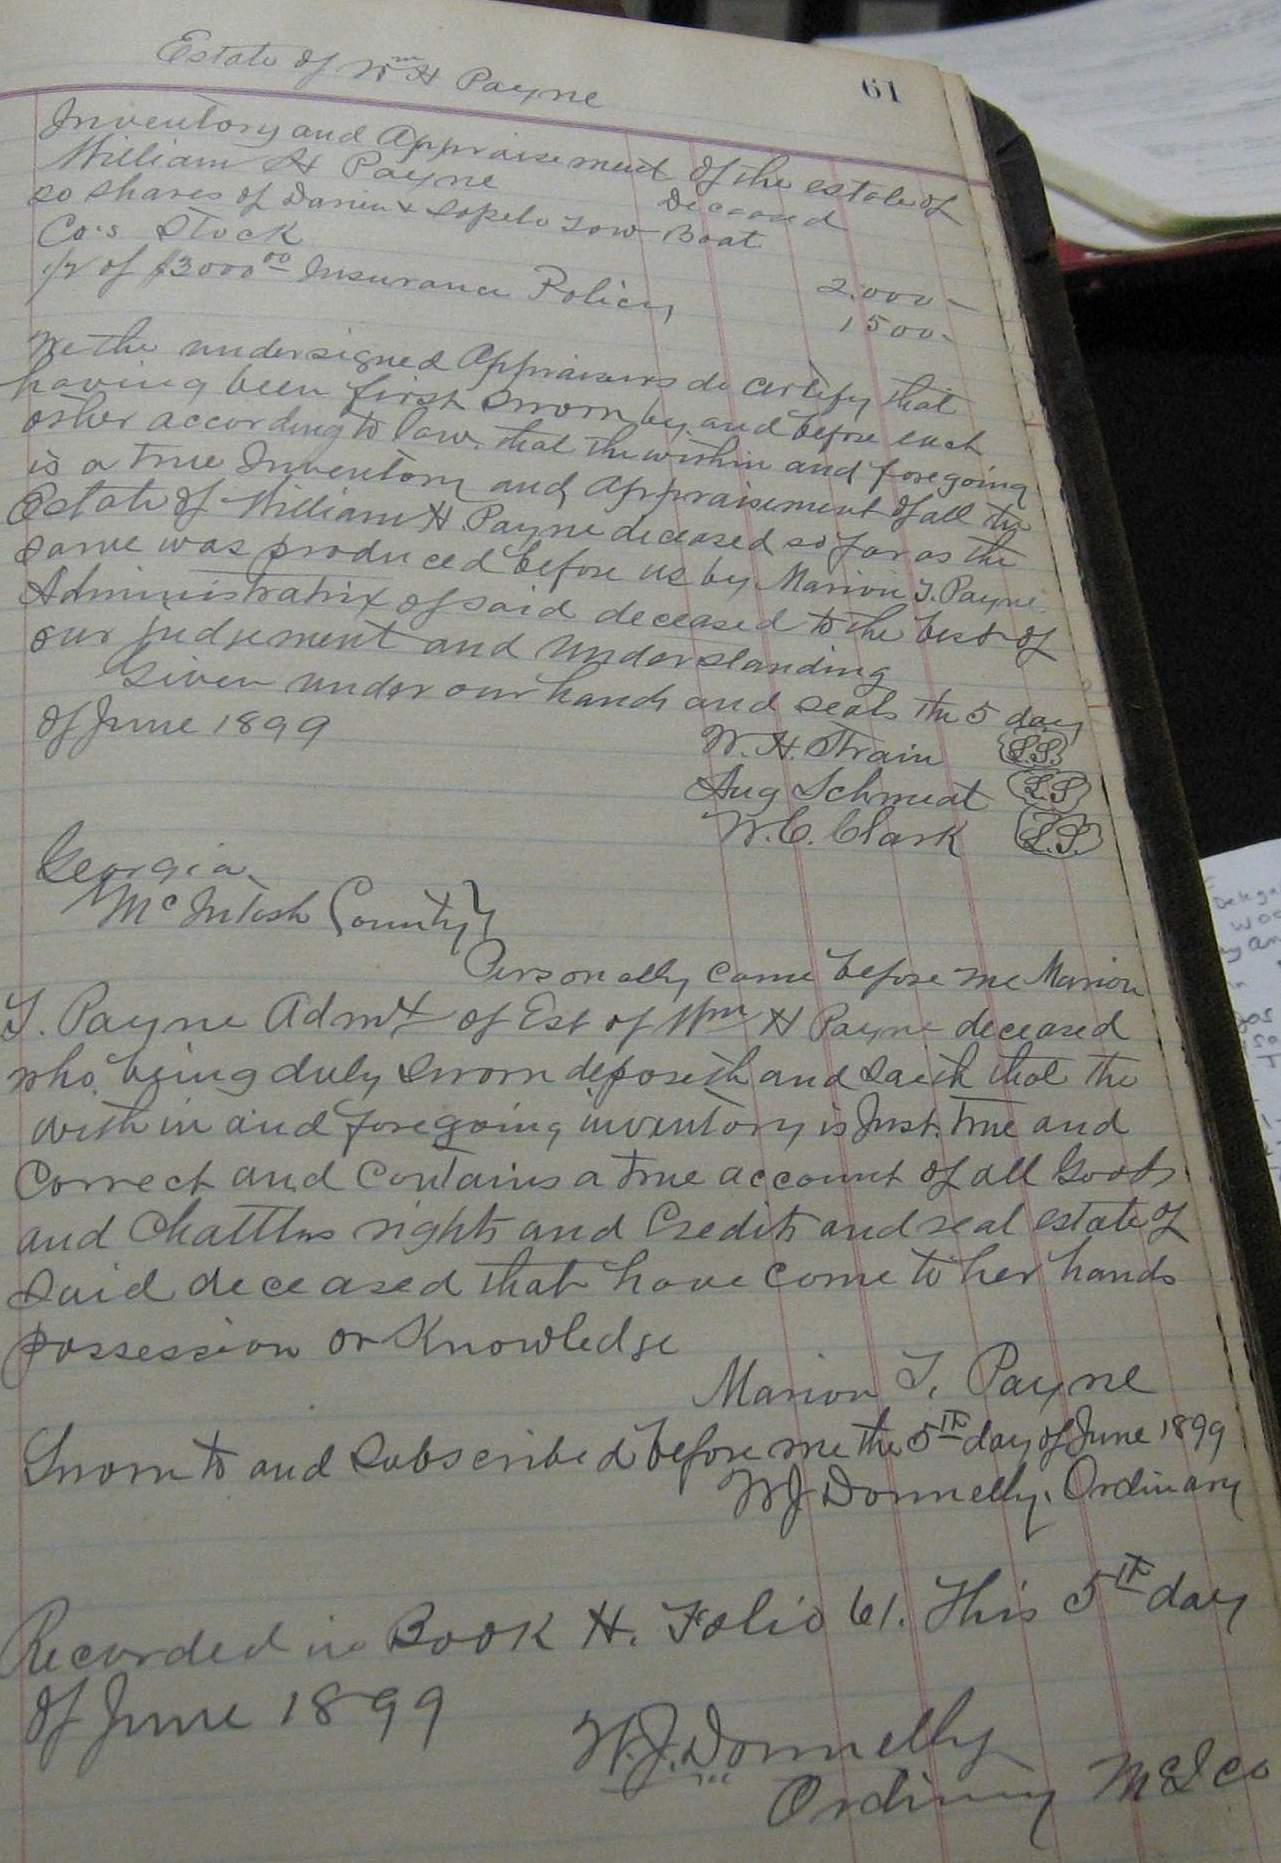 Estate of Wm H Payne
61
Inventory and Appraisement of the estate of
William H Payne Deceased
20 shares of Darien & Sapelo Tow Boat
Co.s Stock 2.000-
1/2 of $3000.00 Insurance Policy 1500-
We the undersigned Appraisers do certify that
having been first sworn by and before each
other according to law, that the within and foregoing
is a true Inventory and appraisement of all the
Estate of William H Payne deceased so far as the
same was produced before us by Marion T. Payne
Administratrix of said deceased to the best of
our judgement and understanding
Given under our hands and seals the 5 day
of June 1899
W. H. Strain L.S.
Aug Schmidt L.S
W. C. Clark L.S.
Georgia
McIntosh County}
Personally came before me Marion
T. Payne Admx of Est of Wm H Payne deceased
who being duly sworn deposeth and saith that the
within and foregoing inventory is Just, true and
Correct and contains a true account of all Goods
and Chattles rights and Credits and real estate of
said deceased that have come to her hands
possession or Knowledge
Marion T. Payne
Sworn to and subscribed before me the 5th day of June 1899
W J Donnelly. Ordinary
Recorded in Book H. Folio 61. This 5th day
of June 1899
W. J. Donnelly
Ordinary McI Co